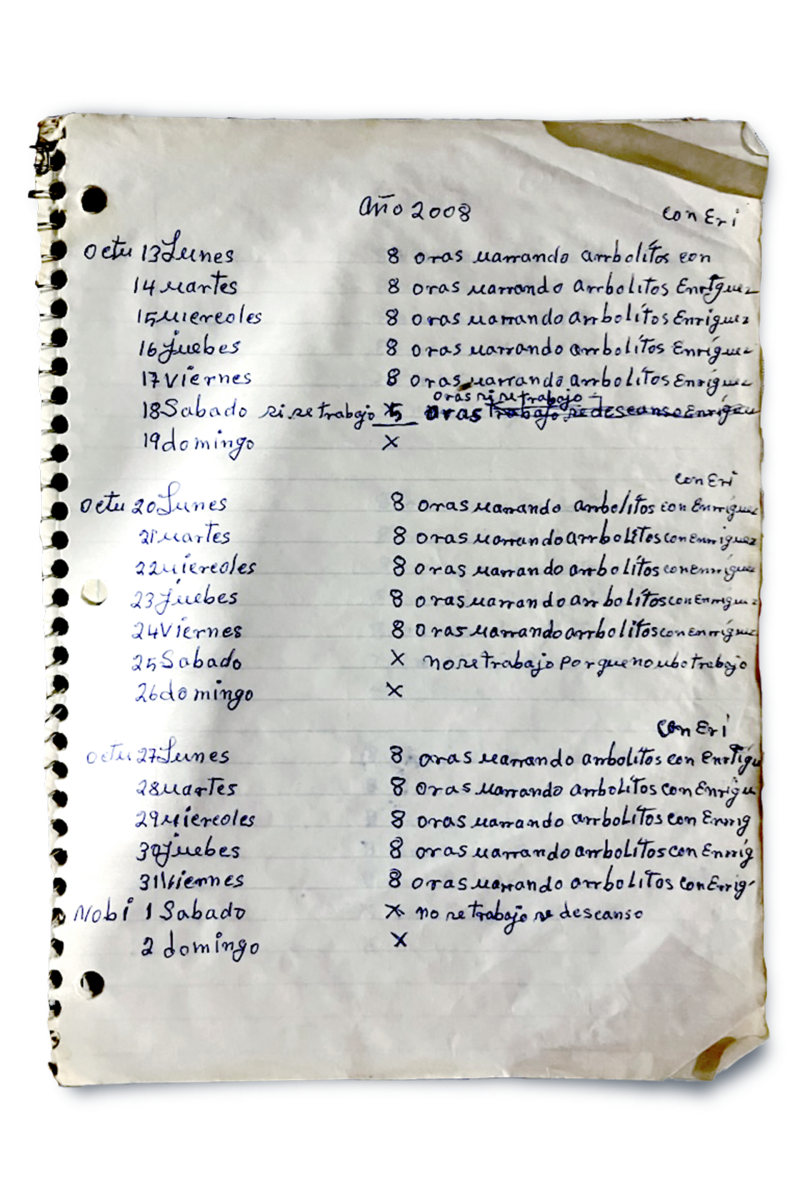 Año 2008
con Eri
Octu 13 Lunes 8 oras uarrando arrbolitos con
14 uartes 8 oras uarrando arrbolitos Enríguez
15 uiercoles 8 oras uarrando arrbolitos Enríguez
16 juebes 8 oras uarrando arrbolitos Enríguez
17 Viernes 8 oras uarrando arrbolitos Enríguez
oras si se trabajo
18 Sabado si se trabajo 5 oras trabajo se descanso Enrígu
19 domingo X
con Eri
Octu 20 Lunes 8 oras uarrando arrbolitos con Enrríguez
21 uartes 8 oras uarrando arrbolitos con enrriguez
22 uiercoles 8 oras uarrando arrbolitos con enrríguez
23 juebes 8 oras uarrando arrbolitos con enrriguez
24 Viernes 8 oras uarrando arrbolitos con enrriguez
25 Sabado X no se trabajo porgue no ubo trabajo
26 domingo X
con Eri
Octu 27 Lunes 8 oras uarrando arrbolitos con Enrrígu
28 uartes 8 oras uarrando arrbolitos con Enrigu
29 uiercoles 8 oras uarrando arrbolitos con Enrrig
30 juebes 8 oras uarrando arrbolitos con Enrrig
31 Viernes 8 oras uarrando arrbolitos con Enrrig
Nobi 1 Sabado X no se trabajo se descanso
2 domingo X